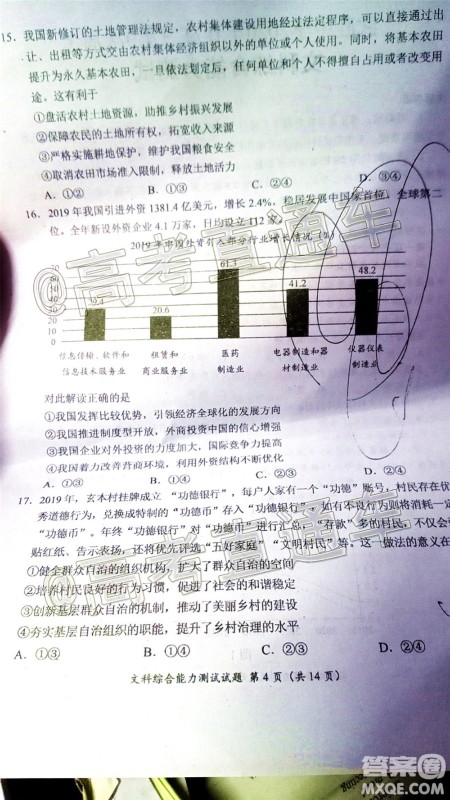 15. 我国新修订的土地管理法规定，农村集体建设用地经过法定程序，可以直接通过出
让、出租等方式交由农村集体经济组织以外的单位或个人使用。同时，将基本农田
提升为永久基本农田，一旦依法划定后，任何单位和个人不得擅自占用或者改变用
途。这有利于
①盘活农村土地资源，助推乡村振兴发展
②保障农民的土地所有权，拓宽收入来源
③严格实施耕地保护，维护我国粮食安全
④取消农田市场准入限制，释放土地活力
A. ①② B. ①③ C. ②④ D. ③④
16. 2019年我国引进外资1381.4亿美元，增长2.4%，稳居发展中国家首位、全球第二
位。全年新设外资企业4.1万家，日均设立112家。
2019年中国外资引入部分行业增长情况（%）
70
60
50
40
30
20
10
0
29.4
20.6
61.3
41.2
48.2
信息传输、软件和 租赁和 医药 电器制造和器 仪器仪表
信息技术服务业 商业服务业 制造业 材制造业 制造业
对此解读正确的是
①我国发挥比较优势，引领经济全球化的发展方向
②我国推进制度型开放，外商投资中国的信心增强
③我国吸收外商投资的力度加大，国际竞争力提高
④我国着力改善营商环境，利用外资结构不断优化
A. ①② B. ①③ C. ②④ D. ③④
17. 2019年，玄本村挂牌成立“功德银行”，每户人家有一个“功德”账号，村民存优
秀道德行为，兑换成特制的“功德币”存入“功德银行”，如有不良行为则将消耗一定
“功德币”。年终“功德银行”对“功德币”进行汇总，“存款”多的村民，以奖
贴红纸、告示表扬，还将优先评选“五好家庭”“文明村民”等。这一做法的意义在
①健全群众自治的组织，扩大了群众自治的空间
②培养村民良好的行为习惯，促进了社会的和谐稳定
③创新基层群众自治的机制，推动了美丽乡村的建设
④夯实基层自治组织的职能，提升了乡村治理的水平
A. ①③ B. ①④ C. ②③ D. ②④
文科综合能力测试试题 第4页（共14页）
@高考直通车
@高考直通车
答案圈
MXQE.COM